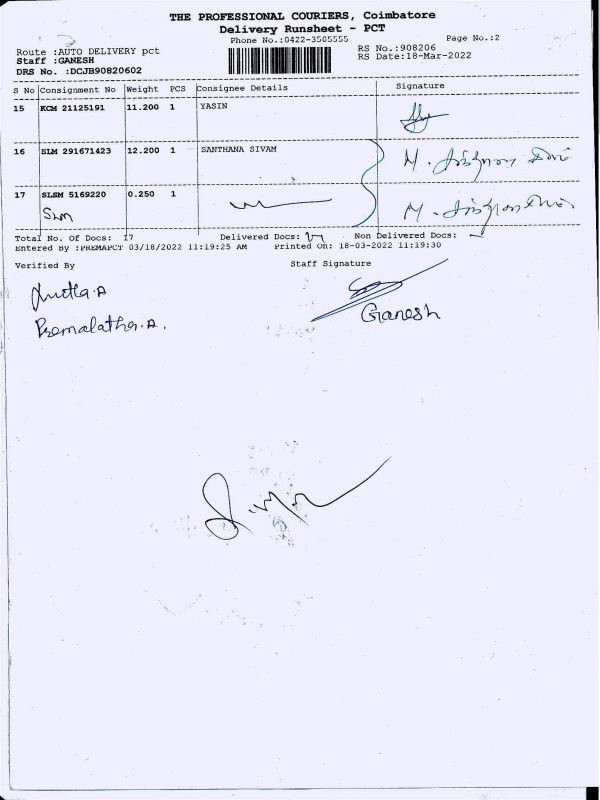 THE PROFESSIONAL COURIERS, Coimbatore
Delivery Runsheet - PCT
Phone No.:0422-3505555
Page No.:2
Route :AUTO DELIVERY pct
RS No.:908206
Staff :GANESH
RS Date:18-Mar-2022
DRS No. :DCJB90820602
S No Consignment No Weight PCS Consignee Details Signature
15 KCM 21125191 11.200 1 YASIN
16 SLM 291671423 12.200 1 SANTHANA SIVAM M.
17 SLSM 5169220 0.250 1 M.
SLM
Total No. Of Docs: 17 Delivered Docs: 17 Non Delivered Docs:
Entered By :PREMAPCT 03/18/2022 11:19:25 AM Printed On: 18-03-2022 11:19:30
Verified By Staff Signature
Premalatha.A. Ganesh